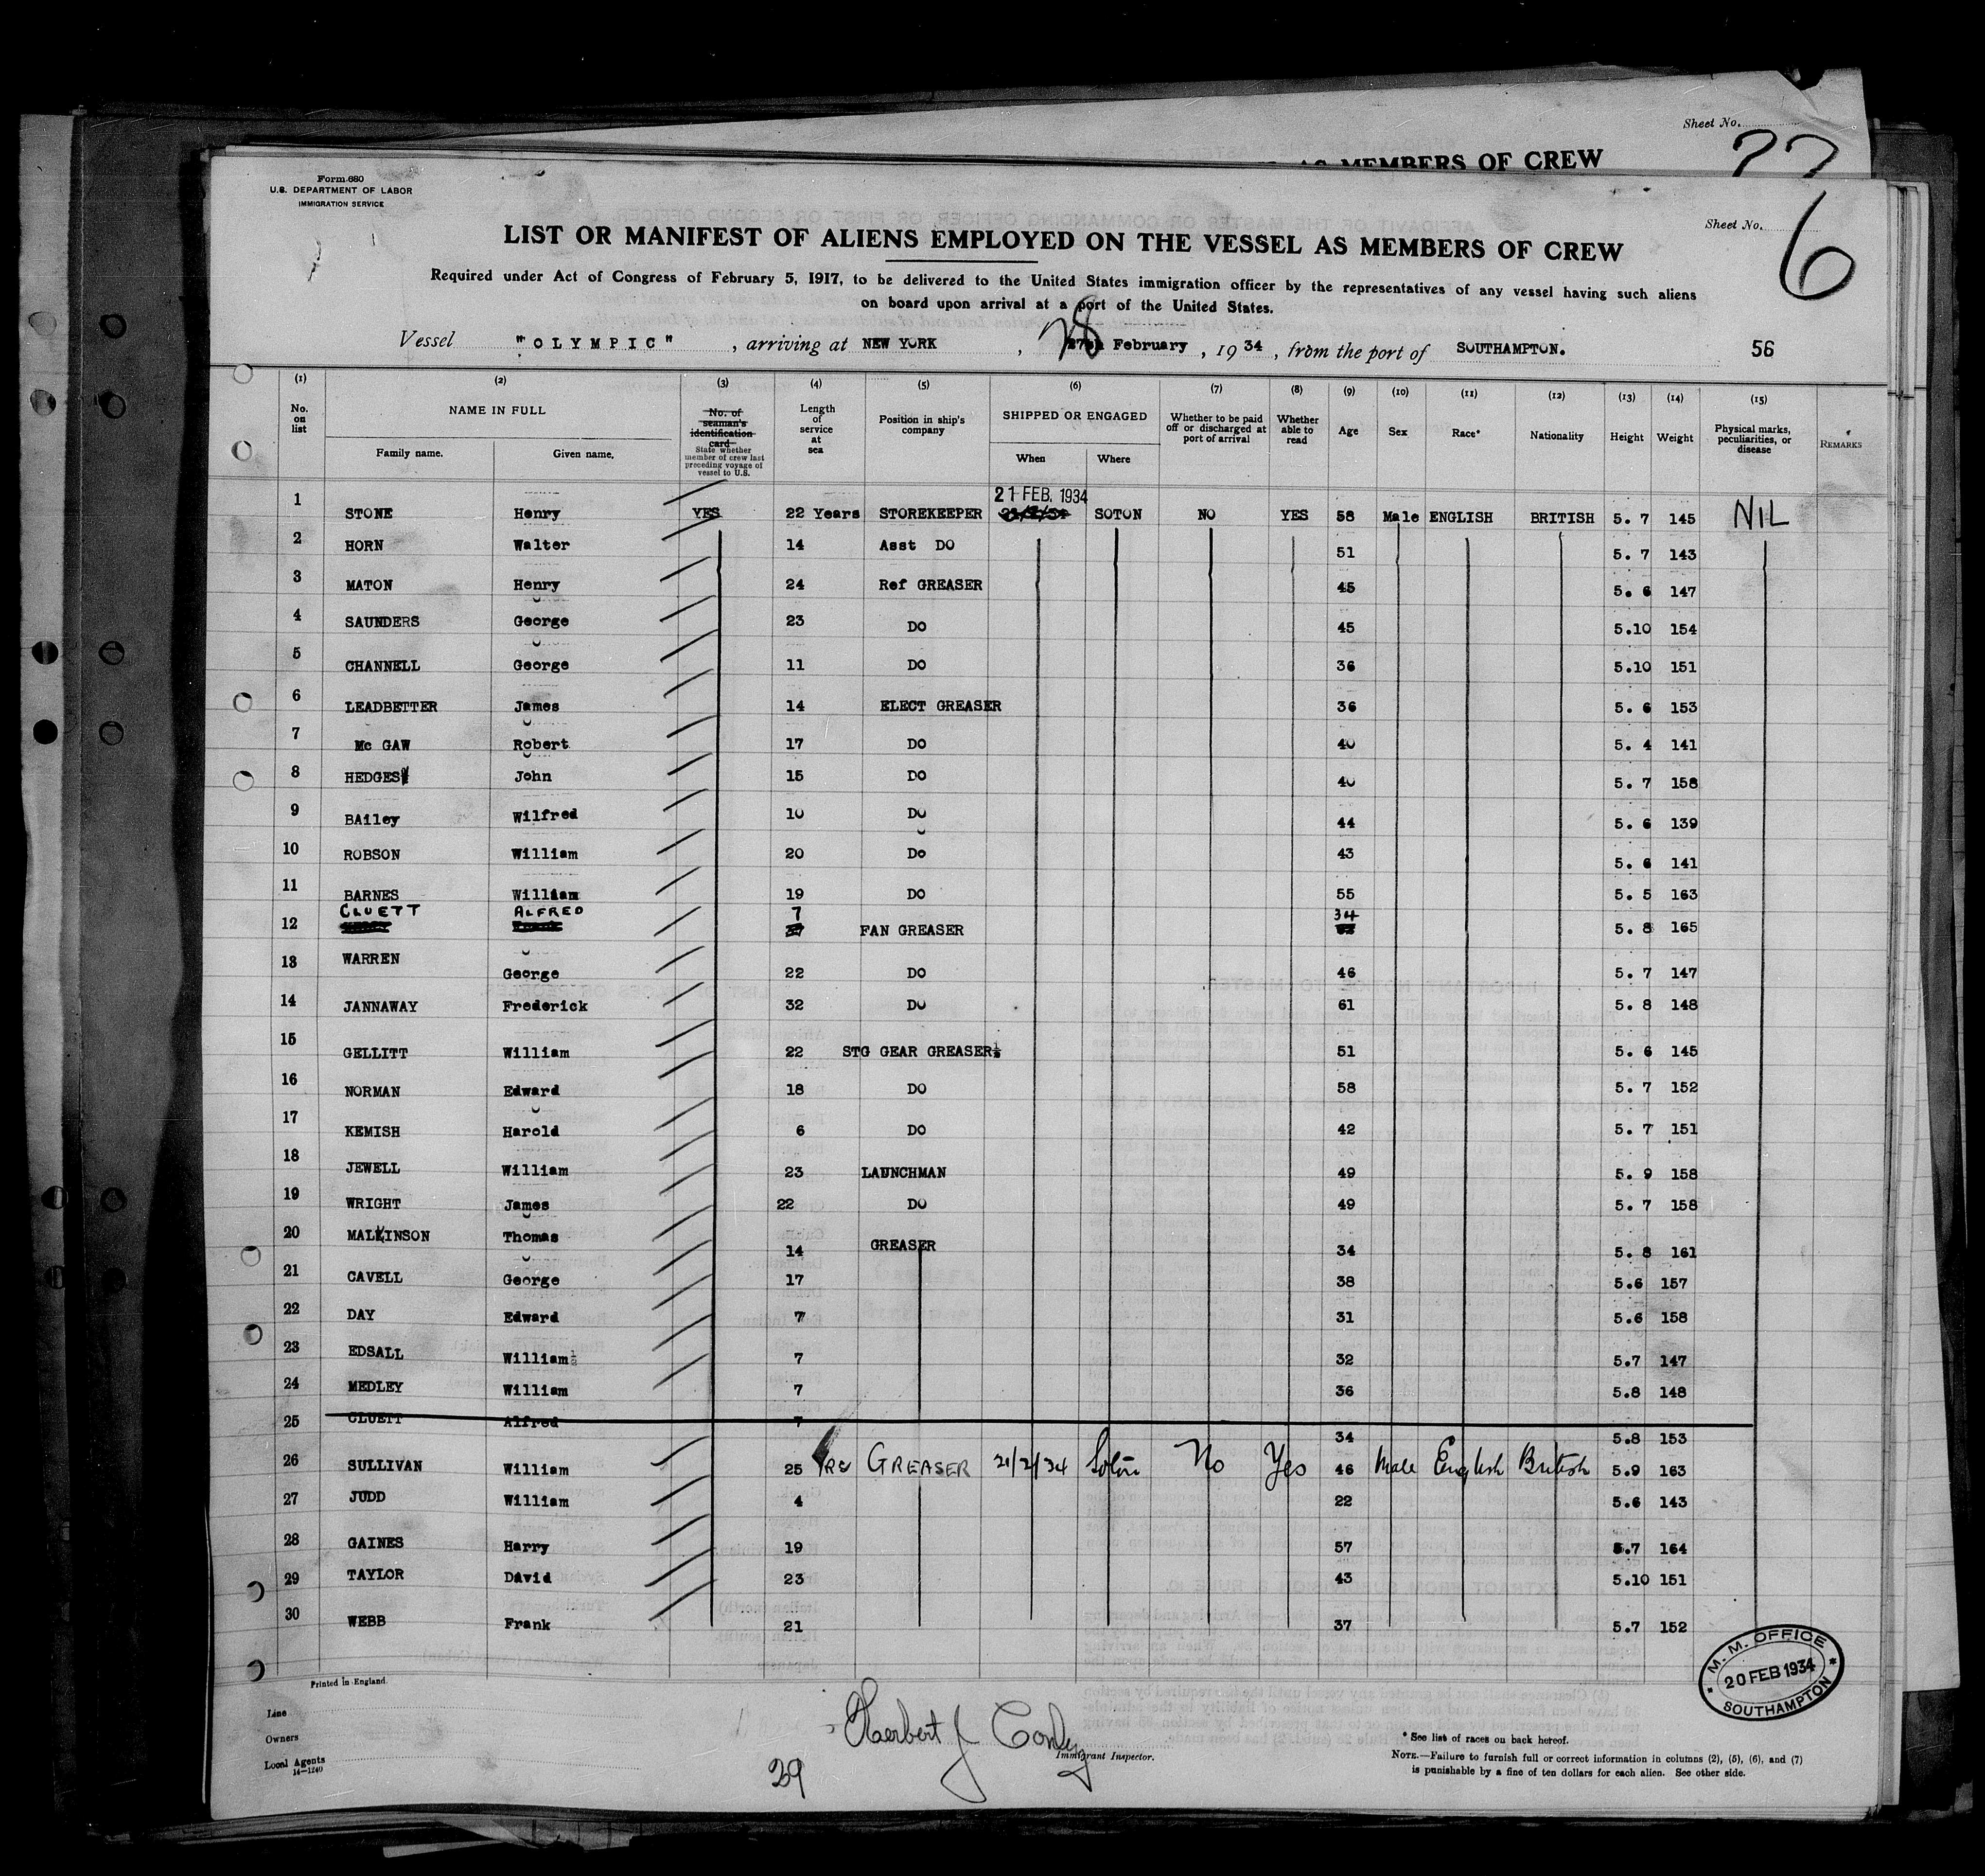 Sheet No.
AS MEMBERS OF CREW
Form 680
U.S. DEPARTMENT OF LABOR
IMMIGRATION SERVICE
Sheet No. 6
LIST OR MANIFEST OF ALIENS EMPLOYED ON THE VESSEL AS MEMBERS OF CREW
Required under Act of Congress of February 5, 1917, to be delivered to the United States immigration officer by the representatives of any vessel having such aliens
on board upon arrival at a port of the United States.
Vessel "OLYMPIC", arriving at NEW YORK, 28 February, 1934, from the port of SOUTHAMPTON. 56
(1) (2) (3) (4) (5) (6) (7) (8) (9) (10) (11) (12) (13) (14) (15)
No. on list NAME IN FULL Family name. Given name. No. of seaman's identification card State whether member of crew last preceding voyage of vessel to U.S. Length of service at sea Position in ship's company SHIPPED OR ENGAGED When Where Whether to be paid off or discharged at port of arrival Whether able to read Age Sex Race* Nationality Height Weight Physical marks, peculiarities, or disease REMARKS
21 FEB. 1934
1 STONE Henry YES 22 Years STOREKEEPER SOTON NO YES 58 Male ENGLISH BRITISH 5. 7 145 NIL
2 HORN Walter 14 Asst DO 51 5. 7 143
3 MATON Henry 24 Ref GREASER 45 5. 6 147
4 SAUNDERS George 23 DO 45 5.10 154
5 CHANNELL George 11 DO 36 5.10 151
6 LEADBETTER James 14 ELECT GREASER 36 5. 6 153
7 Mc GAW Robert 17 DO 40 5. 4 141
8 HEDGES John 15 DO 40 5. 7 158
9 BAiley Wilfred 10 DO 44 5. 6 139
10 ROBSON William 20 Do 43 5. 6 141
11 BARNES William 19 DO 55 5. 5 163
12 CLUETT ALFRED 7 FAN GREASER 34 5. 8 165
13 WARREN George 22 DO 46 5. 7 147
14 JANNAWAY Frederick 32 DO 61 5. 8 148
15 GELLITT William 22 STG GEAR GREASER 51 5. 6 145
16 NORMAN Edward 18 DO 58 5. 7 152
17 KEMISH Harold 6 DO 42 5. 7 151
18 JEWELL William 23 LAUNCHMAN 49 5. 9 158
19 WRIGHT James 22 DO 49 5. 7 158
20 MALKINSON Thomas 14 GREASER 34 5. 8 161
21 CAVELL George 17 38 5.6 157
22 DAY Edward 7 31 5.6 158
23 EDSALL William 7 32 5.7 147
24 MEDLEY William 7 36 5.8 148
25 CLUETT Alfred 7 34 5.8 153
26 SULLIVAN William 25 yrs GREASER 21/2/34 Soton No Yes 46 Male English British 5.9 163
27 JUDD William 4 22 5.6 143
28 GAINES Harry 19 57 5.7 164
29 TAYLOR David 23 43 5.10 151
30 WEBB Frank 21 37 5.7 152
M. M. OFFICE
20 FEB 1934
SOUTHAMPTON
Printed in England
Line
Owners
Local Agents
14-1240
Herbert J
Immigrant Inspector.
29
* See list of races on back hereof.
NOTE.—Failure to furnish full or correct information in columns (2), (5), (6), and (7)
is punishable by a fine of ten dollars for each alien. See other side.